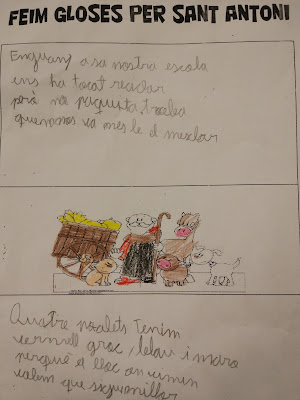 FEIM GLOSES PER SANT ANTONI
Enguany a sa nostra escola
ens ha tocat reciclar
però na paquita troba
que mos va mes le el mesclar
Quatre poalets tenim
vermell groc, blau i
perquè a lloc on
volem que